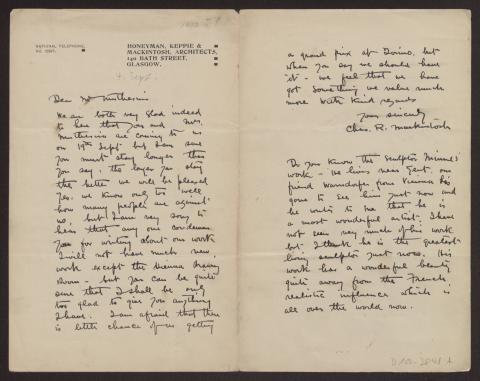 NATIONAL TELEPHONE,
HONEYMAN, KEPPIE &
MACKINTOSH, ARCHITECTS,
140 BATH STREET,
GLASGOW.
4 Sept.
Dear Mr Muthesius
We are both very glad indeed
to hear that you and Mrs.
Muthesius are coming to us
on 19th Sept but I am sure
you must stay longer than
you say; the longer you stay
the better we will be pleased
yes. we know only too well
how many people are against
us, but I am very sorry to
hear that any one condemns
you for writing about our work
I will not have much new
work except the Vienna drawing
room - but you can be quite
sure that I shall be only
too glad to give you anything
I have. I am afraid that there
is little chance of us getting
a grand prix at Torino, but
when you say we should have
it - we feel that we have
got something we value much
more With kind regards
Yours sincerely
Chas. R. Mackintosh
Do you know the sculptor Minne's
work - he lives near Gent, our
friend Warndorfer from Vienna has
gone to see him just now and
he writes to me that he is
a most wonderful artist. I have
not seen very much of his work
but I think he is the greatest
living sculptor just now. His
work has a wonderful beauty
quite away from the French
realistic influence which is
all over the world now.